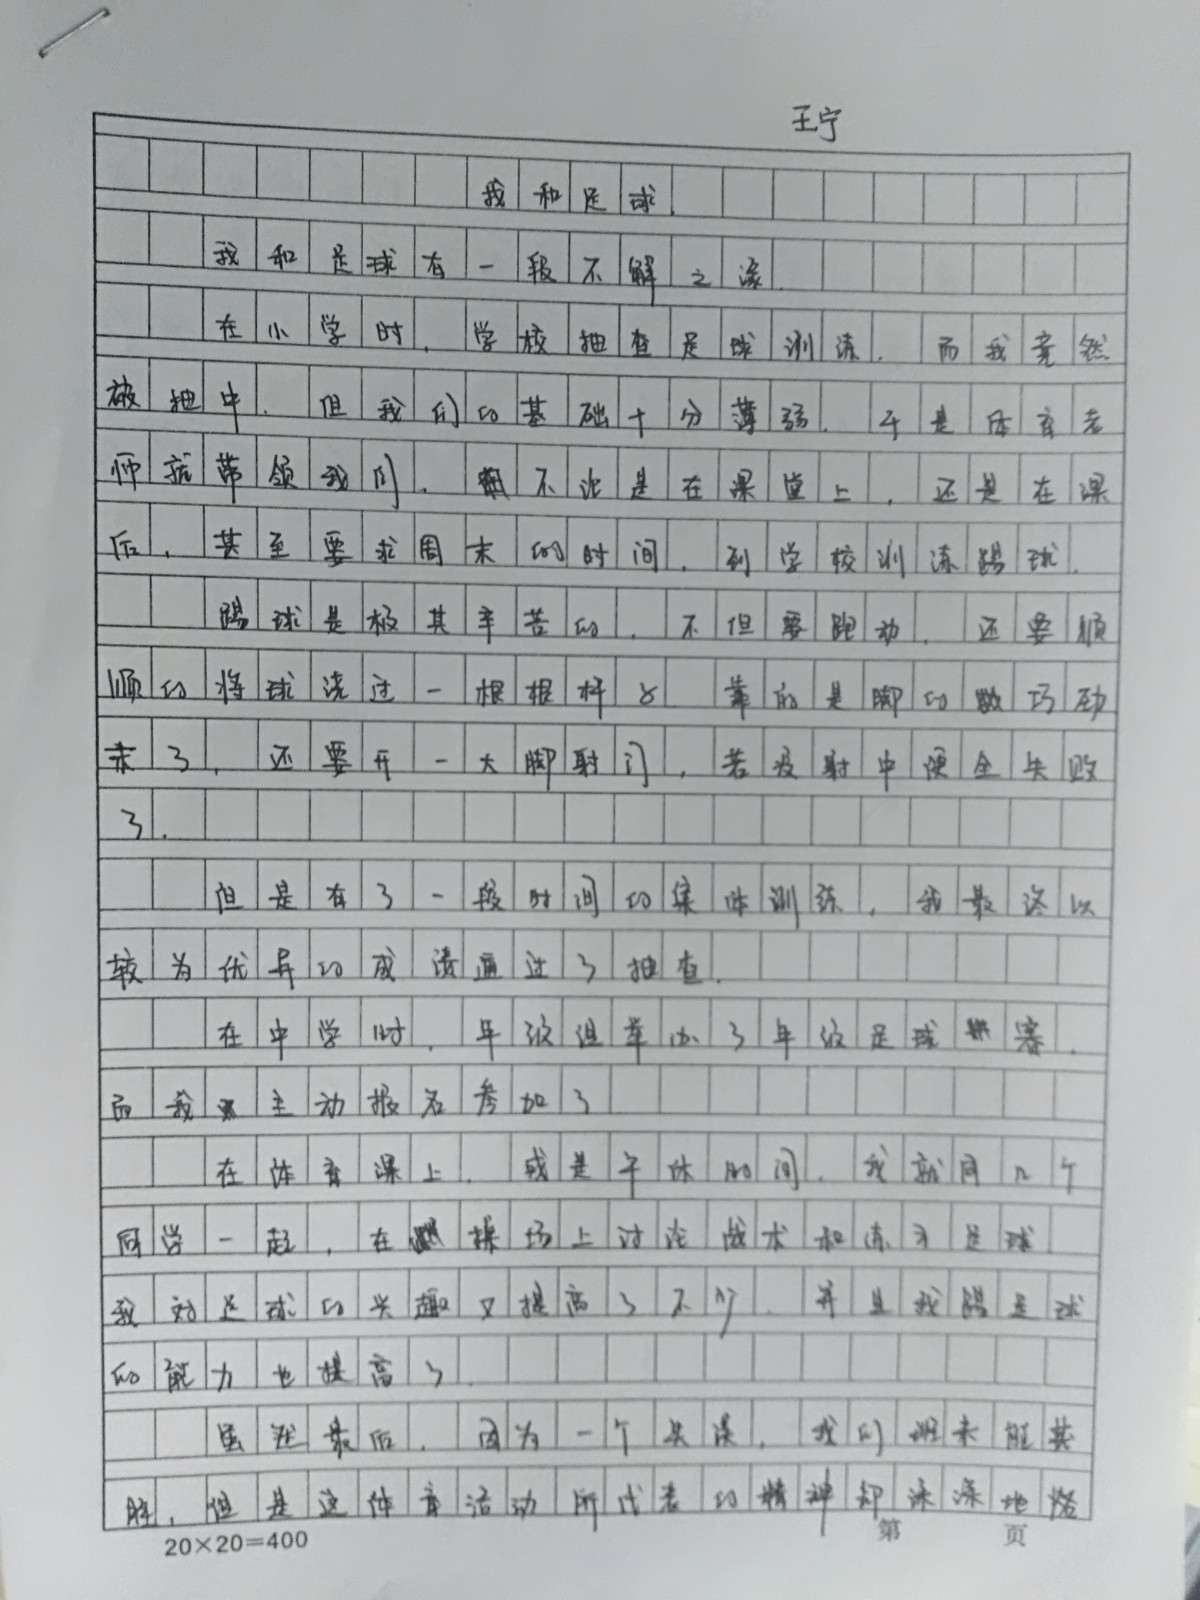 王宁
我和足球
我和足球有一段不解之缘.
在小学时,学校抽查足球训练.而我竟然
被抽中.但我们的基础十分薄弱.于是体育老
师就带领我们,不论是在课堂上,还是在课
后,甚至要求周末的时间,到学校训练踢球.
踢球是极其辛苦的,不但要跑动,还要顺
顺的将球绕过一根根杆 靠的是脚的 巧劲
了,还要开一大脚射门,若没射中便全失败
了.
但是有了一段时间的集体训练,我最终以
较为优异的成绩通过了抽查.
在中学时,年级组举办了年级足球 赛.
而我 主动报名参加了
在体育课上,或是午休时间,我就同几个
同学一起,在 操场上讨论战术和练习足球
我对足球的兴趣又提高了不少.并且我踢足球
的能力也提高了.
虽然最后,因为一个失误,我们班未能获
胜,但是这体育活动所代表的精神却深深地烙
20×20=400
第 页